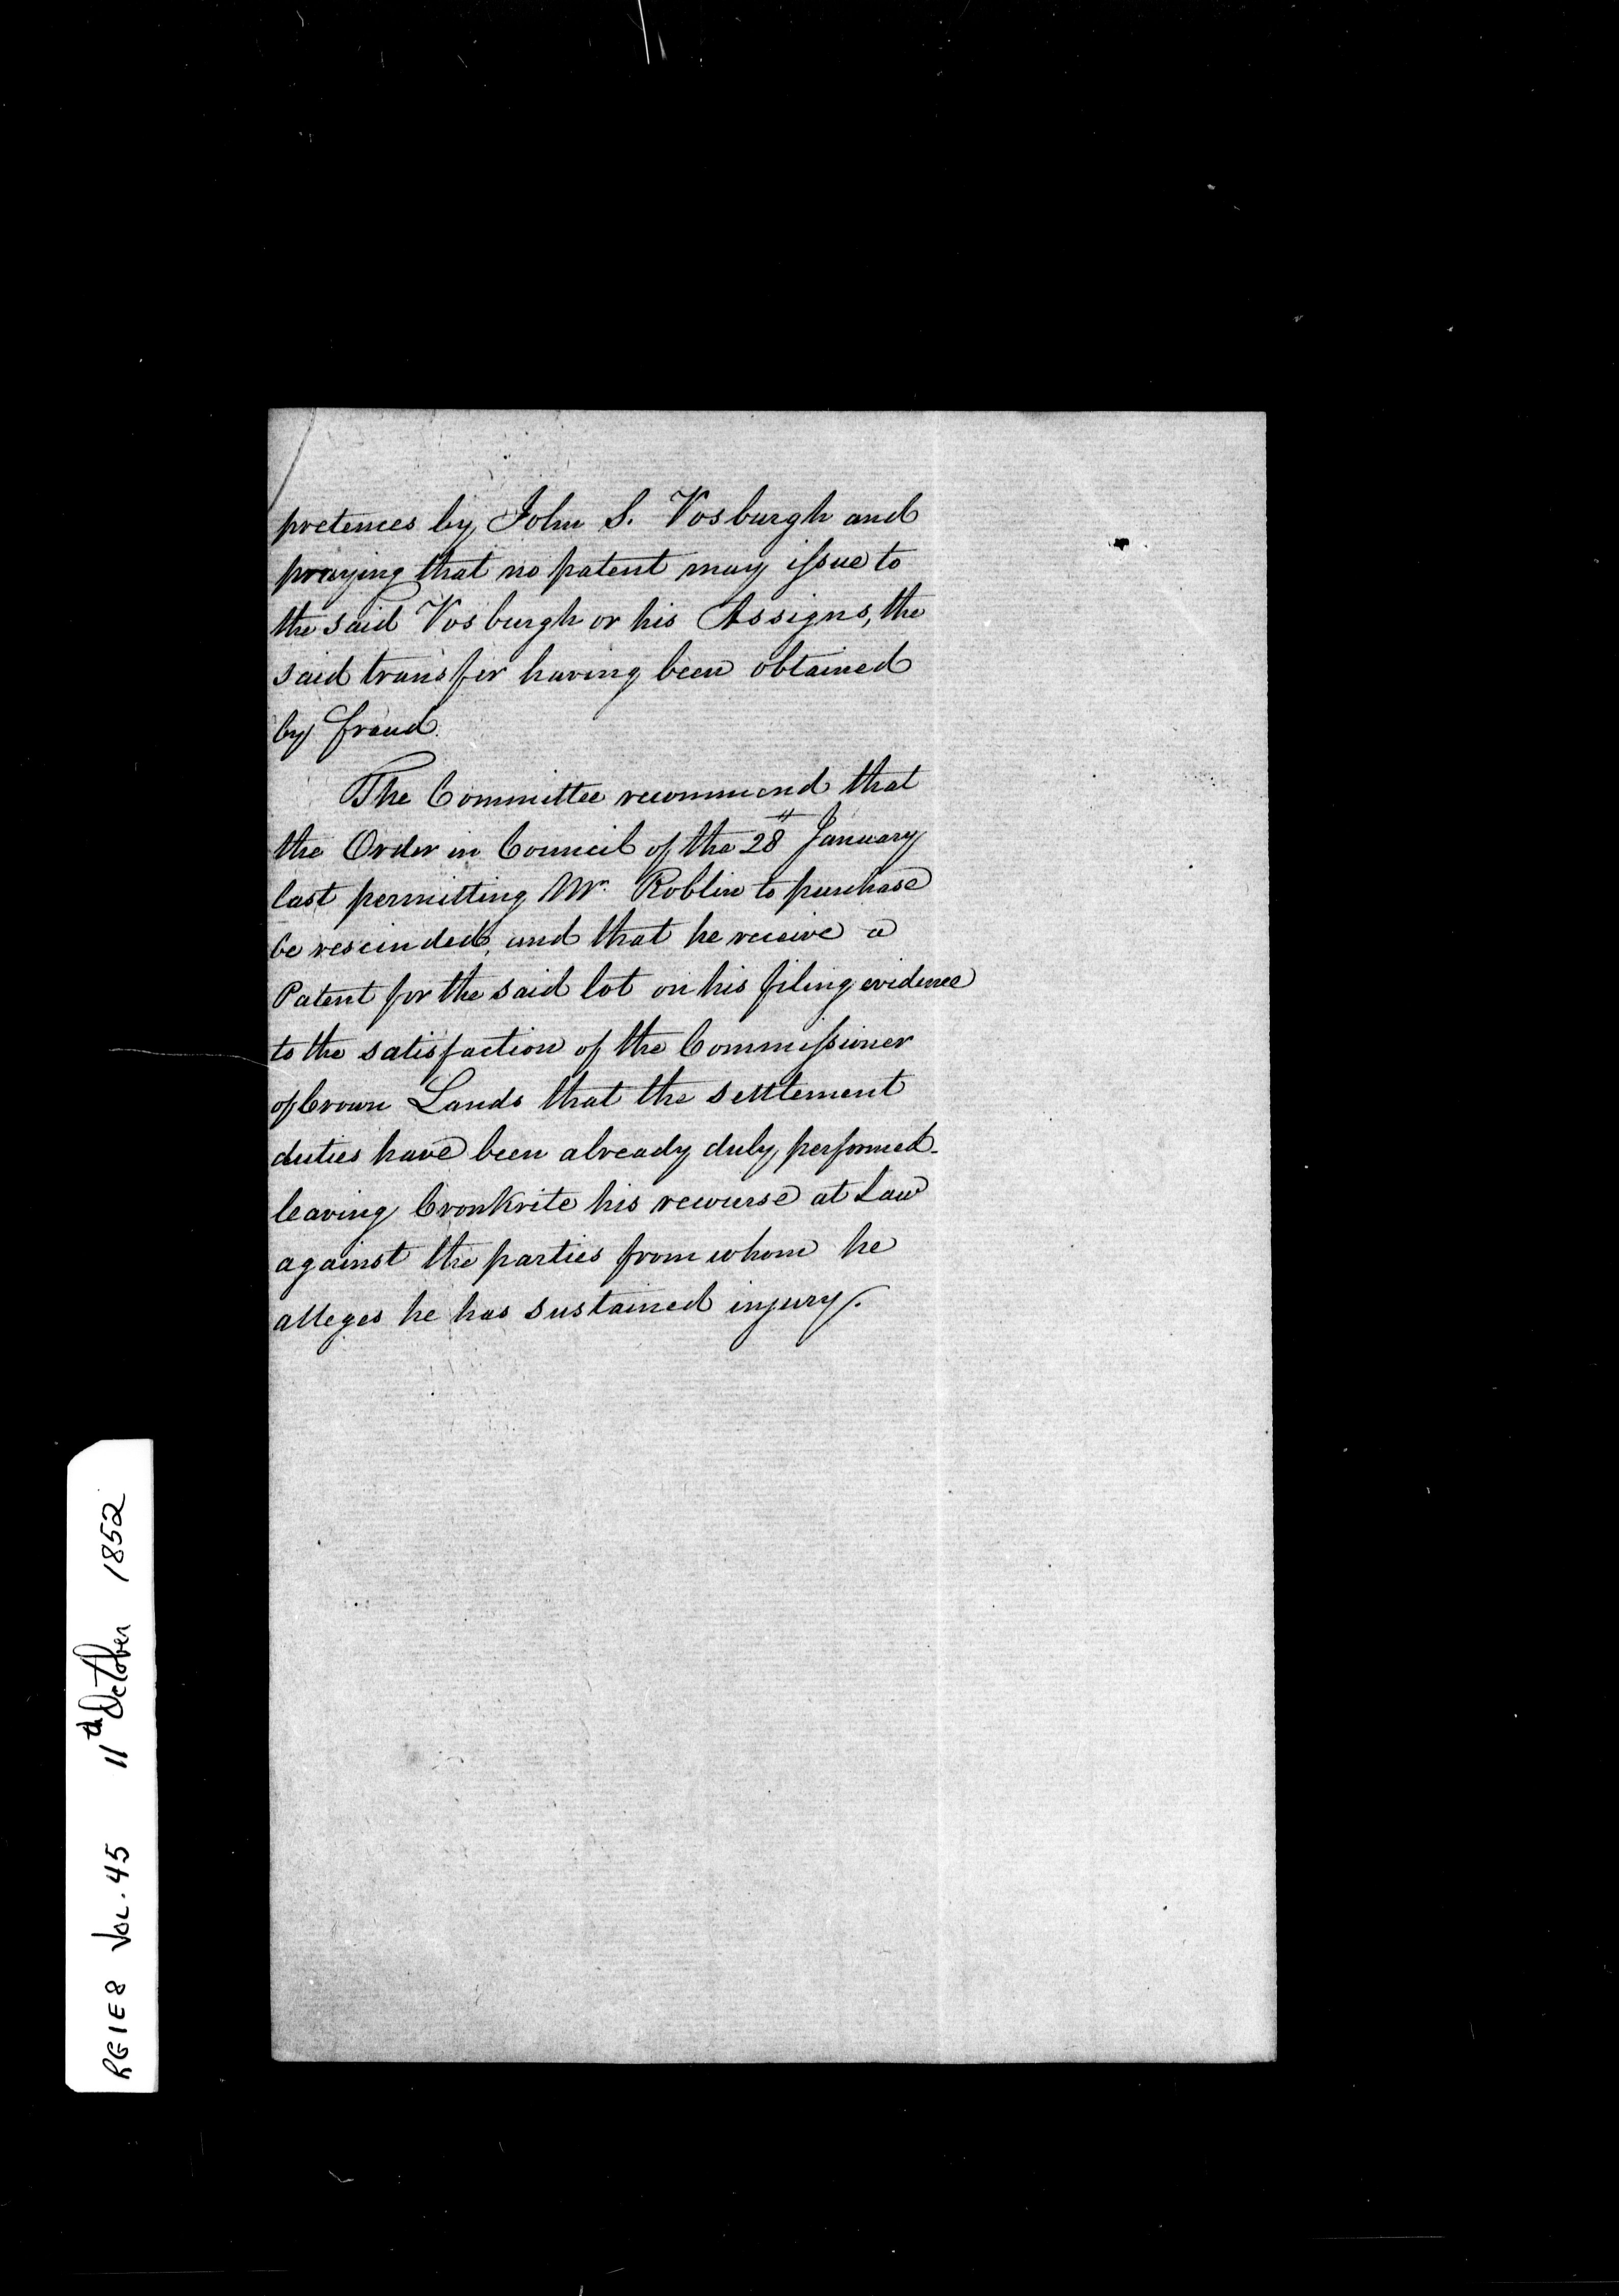 pretences by John S. Vosburgh and
praying that no patent may issue to
the said Vosburgh or his Assigns, the
said transfer having been obtained
by fraud.
The Committee recommend that
the Order in Council of the 28th January
last permitting Mr. Roblin to purchase
be rescinded, and that he receive a
Patent for the said lot on his filing evidence
to the satisfaction of the Commissioner
of Crown Lands that the settlement
duties have been already duly performed.
leaving Cronkrite his recourse at Law
against the parties from whom he
alleges he has sustained injury/.
RG1E8 VOL. 45 11th October 1852